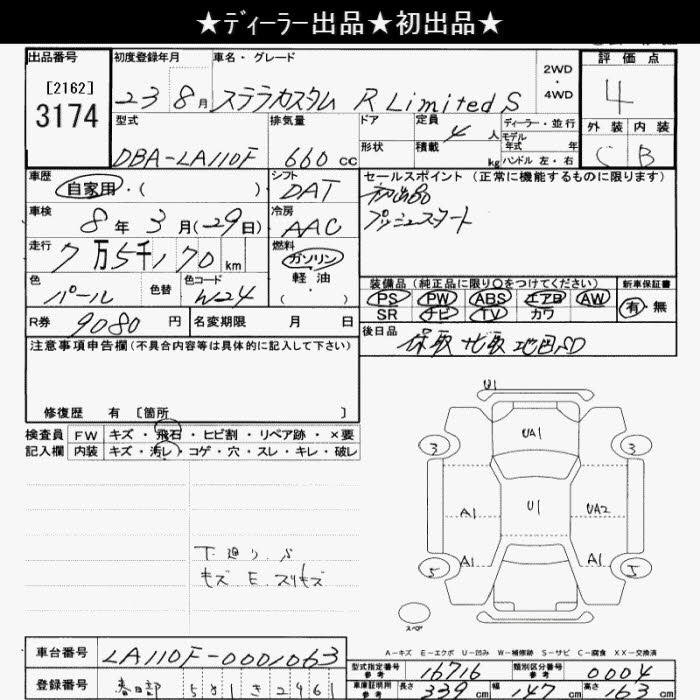 ★ディーラー出品★初出品★
出品番号
[2162]
3174
初度登録年月
23 8月
車名・グレード
ステラカスタム R Limited S
2WD
・
4WD
評価点
4
外装 内装
C B
型式
DBA-LA110F
排気量
660 cc
ドア
形状
定員 4 人
積載 kg
ディーラー・並行
モデル年式 年
ハンドル 左・右
車歴
自家用・( )
シフト
DAT
セールスポイント (正常に機能するものに限ります)
初出品
プッシュスタート
車検
8年 3月(29日)
冷房
AAC
走行
7万5千170 km
燃料
ガソリン
軽油
( )
色
パール
色替
色コード
W24
装備品 (純正品に限り○をつけてください)
PS PW ABS エアB AW
SR ナビ TV カワ
新車保証書
有・無
R券 9080 円
名変期限 月 日
後日品
保取 ナビ取 地図SD
注意事項申告欄(不具合内容等は具体的に記入して下さい)
修復歴 有 [箇所 ]
検査員
記入欄
FW キズ・飛石・ヒビ割・リペア跡・×要
内装 キズ・汚レ・コゲ・穴・スレ・キレ・破レ
下廻り.S
キズ E. スリキズ
U1
UA1
3 3
A1 U1 UA2
A1 A1
5 5
スペア
A-キズ E-エクボ U-凹み W-補修跡 S-サビ C-腐食 XX-交換済
車台番号 LA110F-0001063
登録番号 春日部 581 き 2961
型式指定番号
参考
16716
類別区分番号
参考
0004
車庫証明用
参考
長さ 339 cm 幅 147 cm 高さ 163 cm